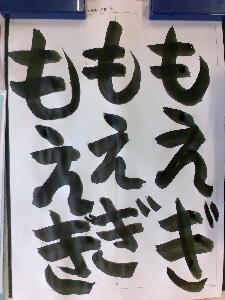 もえぎ
もえぎ
もえぎ